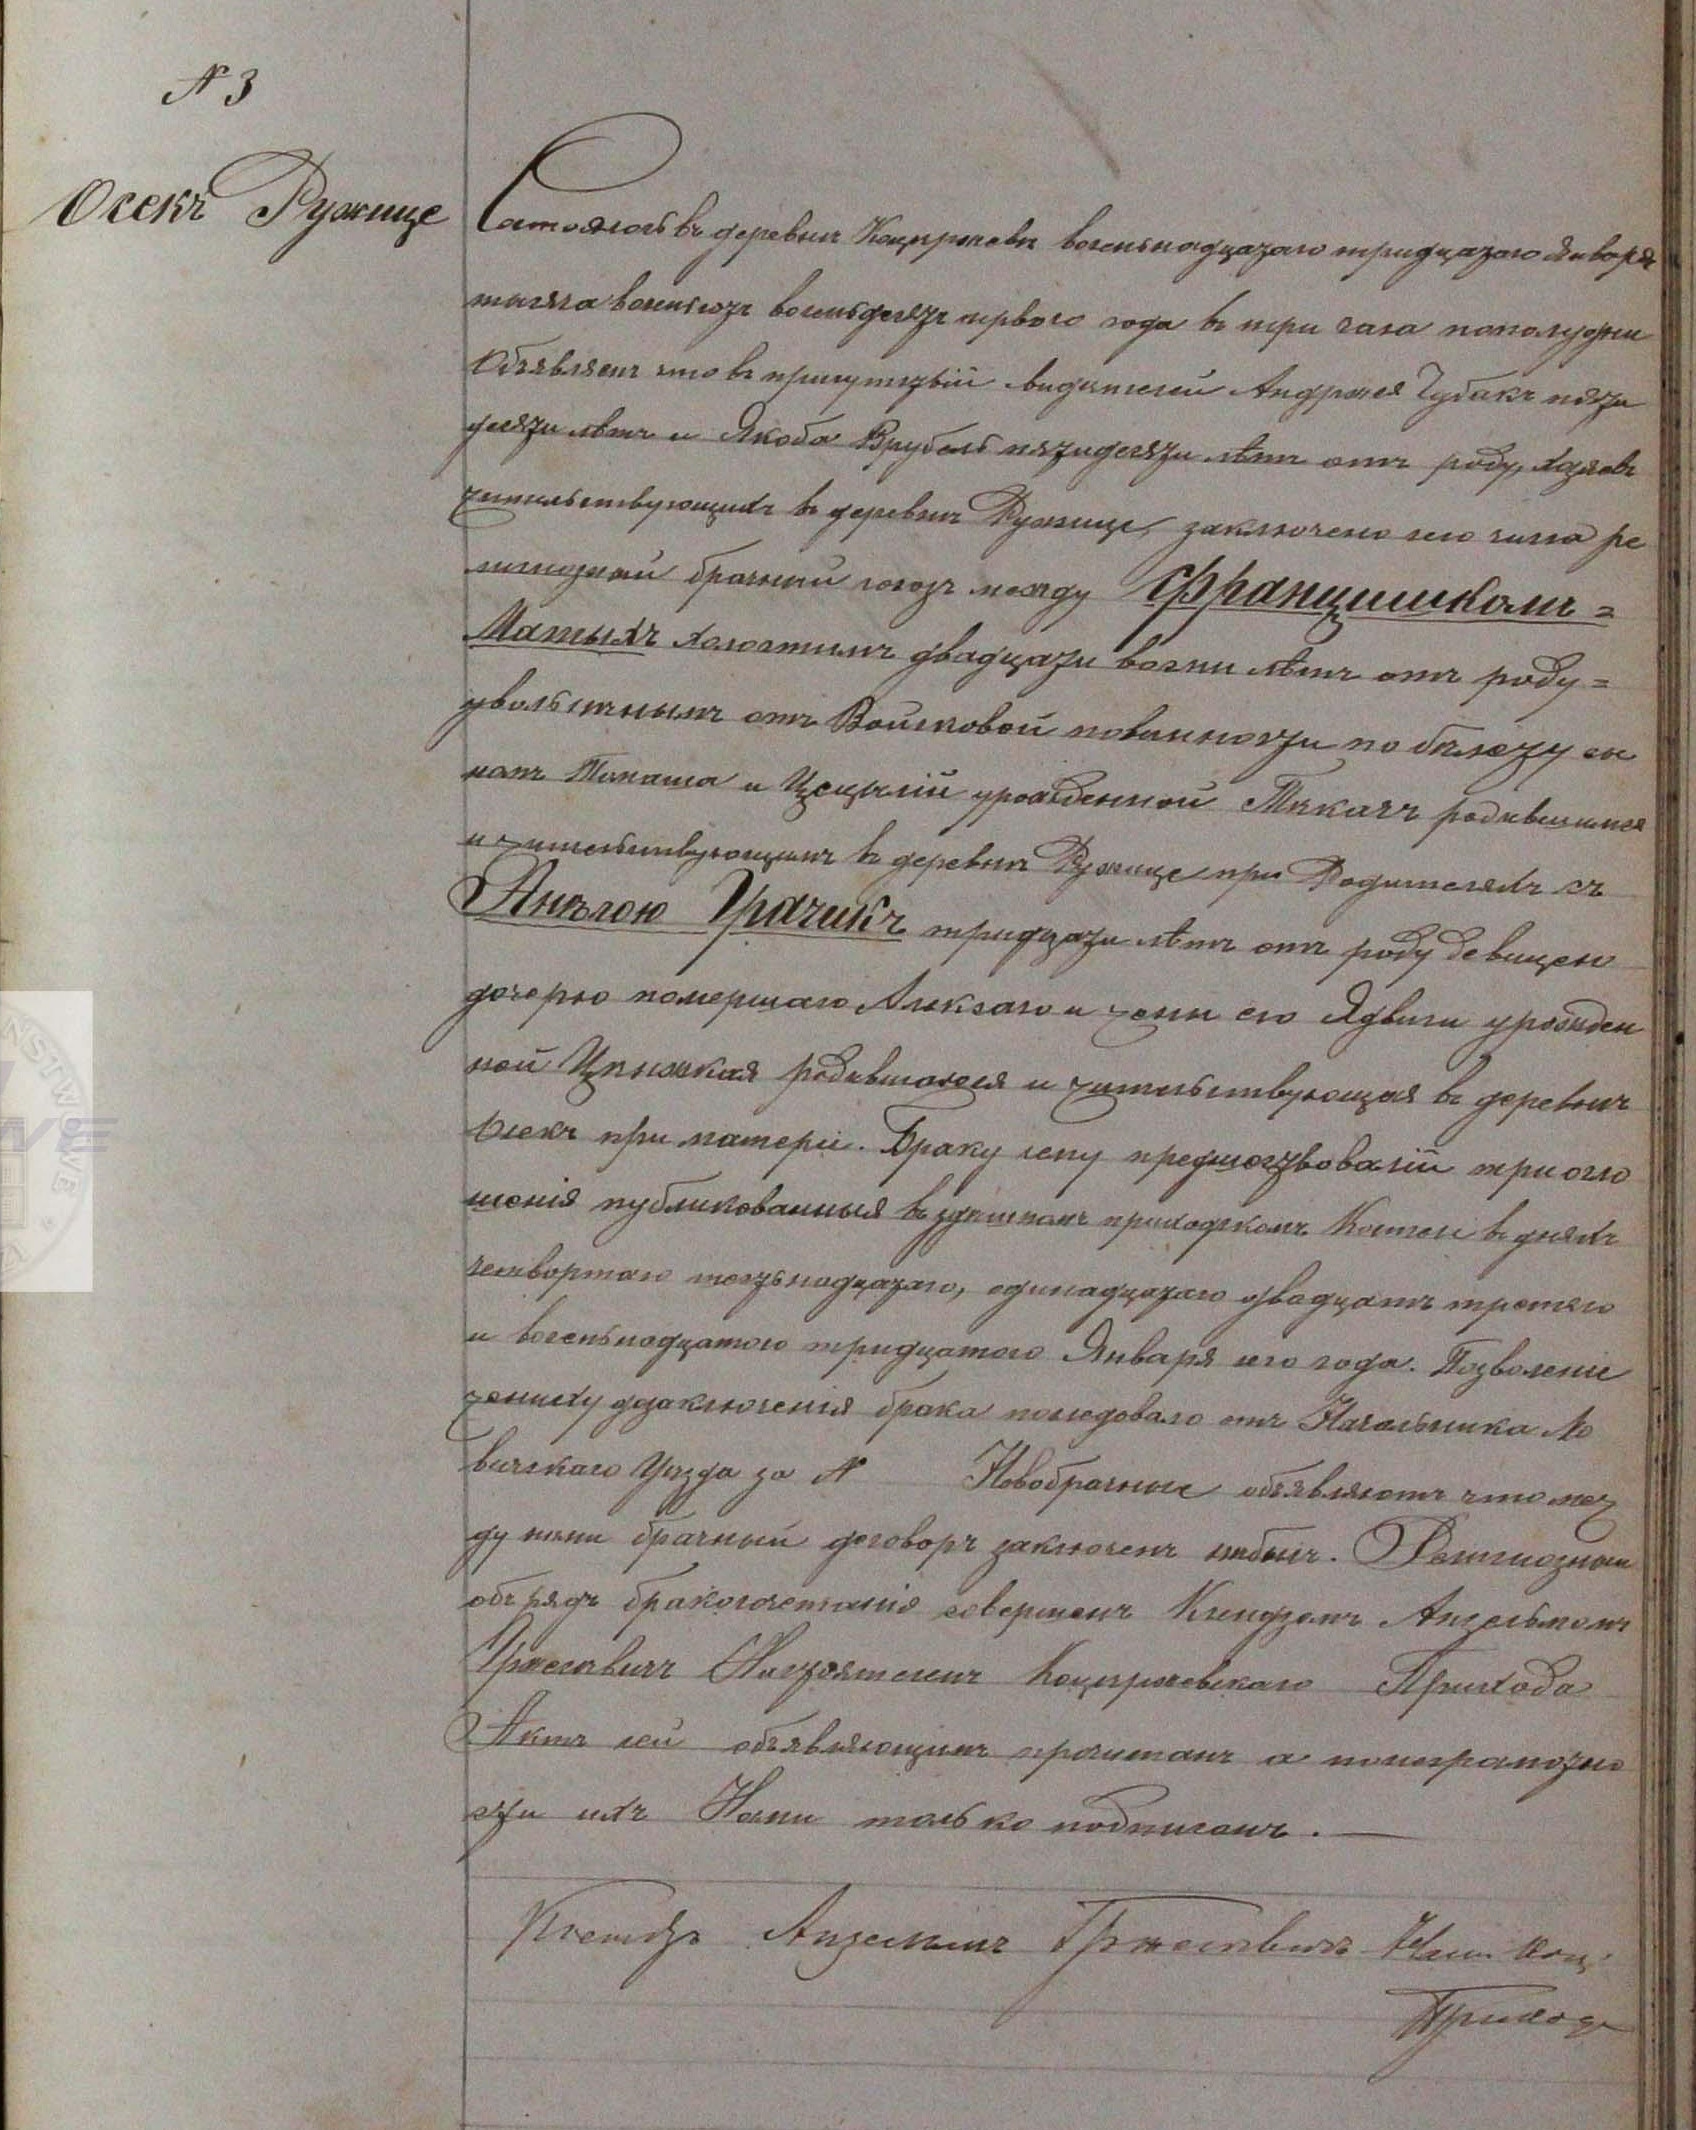 N 3
Осекъ Ружице
Состоялось въ деревни Коцержевѣ восемьнадцатаго тридцатаго Января
тысяча восемьсотъ восемьдесятъ перваго года въ три часа пополудни
Объявляемъ что въ присутствіи свидѣтелей Андржея Чубакъ пяти
десяти лѣтъ и Якоба Врубель пятидесяти лѣтъ отъ роду, хозяевъ
жительствующихъ въ деревни Ружице, заключено сего числа ре
лигіозный брачный союзъ между Францишкомъ =
Матыхъ холостымъ двадцати восми лѣтъ отъ роду =
увольненнымъ отъ Воинсковой повинности по билету сы
номъ Томаша и Цецыліи урожденной Ткачъ родившимся
и жительствующимъ въ деревни Ружице при Родителяхъ съ
Анелою Грачикъ тридцати лѣтъ отъ роду девицею
дочерью помершаго Алексаго и жены его Ядвиги урожден
ной родившаюся и жительствующая въ деревни
Осекъ при матери. Браку сему предшествовалій три огло
шенія публикованныя въ здѣшномъ приходскомъ Костелѣ въ дняхъ
четвортаго шестьнадцатаго, одинадцатаго двадцать третяго
и восемьнадцатого тридцатого Января сего года. Позволеніе
жениху дзаключенія брака последовало отъ Начальника Ло
вичскаго Уѣзда за N Новобрачные объявляютъ что меж
ду ними брачный договоръ заключенъ небылъ. Религіозный
обрядъ бракосочетанія совершенъ Ксендземъ Анзельмомъ
Гржегавичъ Настоятелемъ Коцержевскаго Прихода
Актъ сей объявляющимъ прочитанъ а понеграмотно
сти ихъ Нами только подписанъ. —
Ксендзъ Анзельмъ Гржегавичъ Коц.
Приход